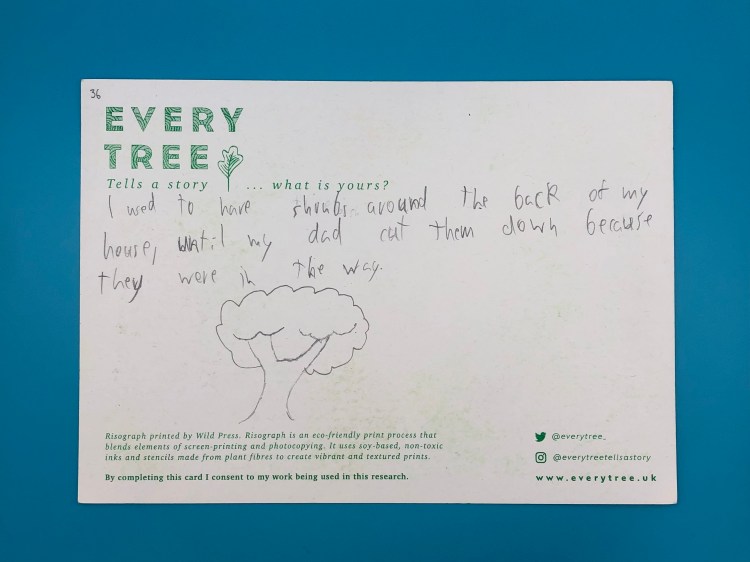 36
EVERY
TREE
Tells a story ... what is yours?
I used to have shrubs around the back of my
house, until my dad cut them down because
they were in the way.
Risograph printed by Wild Press. Risograph is an eco-friendly print process that
blends elements of screen-printing and photocopying. It uses soy-based, non-toxic
inks and stencils made from plant fibres to create vibrant and textured prints.
By completing this card I consent to my work being used in this research.
@everytree_
@everytreetellsastory
www.everytree.uk